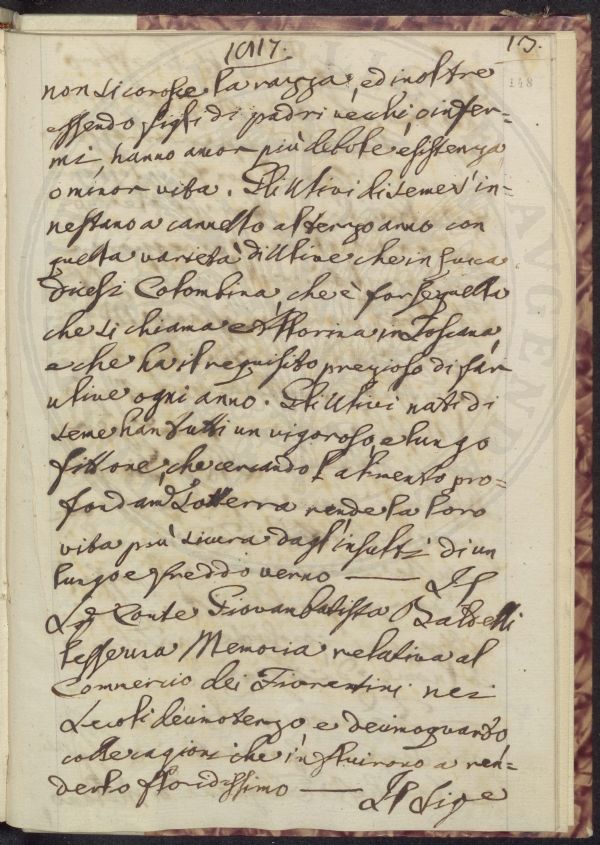 1817.
13.
148
non si conosce la razza; ed inoltre
essendo figli di padri vecchi, o infer=
mi, hanno ancor più debole esistenza
o minor vita. Gli Ulivi di seme s'in=
nestano a cannello al terzo anno con
quella varietà d'Ulive che in Lucca
dicesi Colombina, che è forse quella
che si chiama Mortina in Toscana,
e che ha il requisito prezioso di far
ulive ogni anno. Gli Ulivi nati di
seme han tutti un vigoroso e lungo
fittone, che cercando l'alimento pro=
fondam.e sotterra rende la loro
vita più sicura dagl'insulti di un
lungo e freddo verno —— Il
Sig. Conte Giovanbatista Baldelli
lesse una Memoria relativa al
Commercio dei Fiorentini nei
Secoli decimoterzo e decimoquarto,
colle cagioni che influirono a ren=
derlo floridissimo —— Il Sig.e